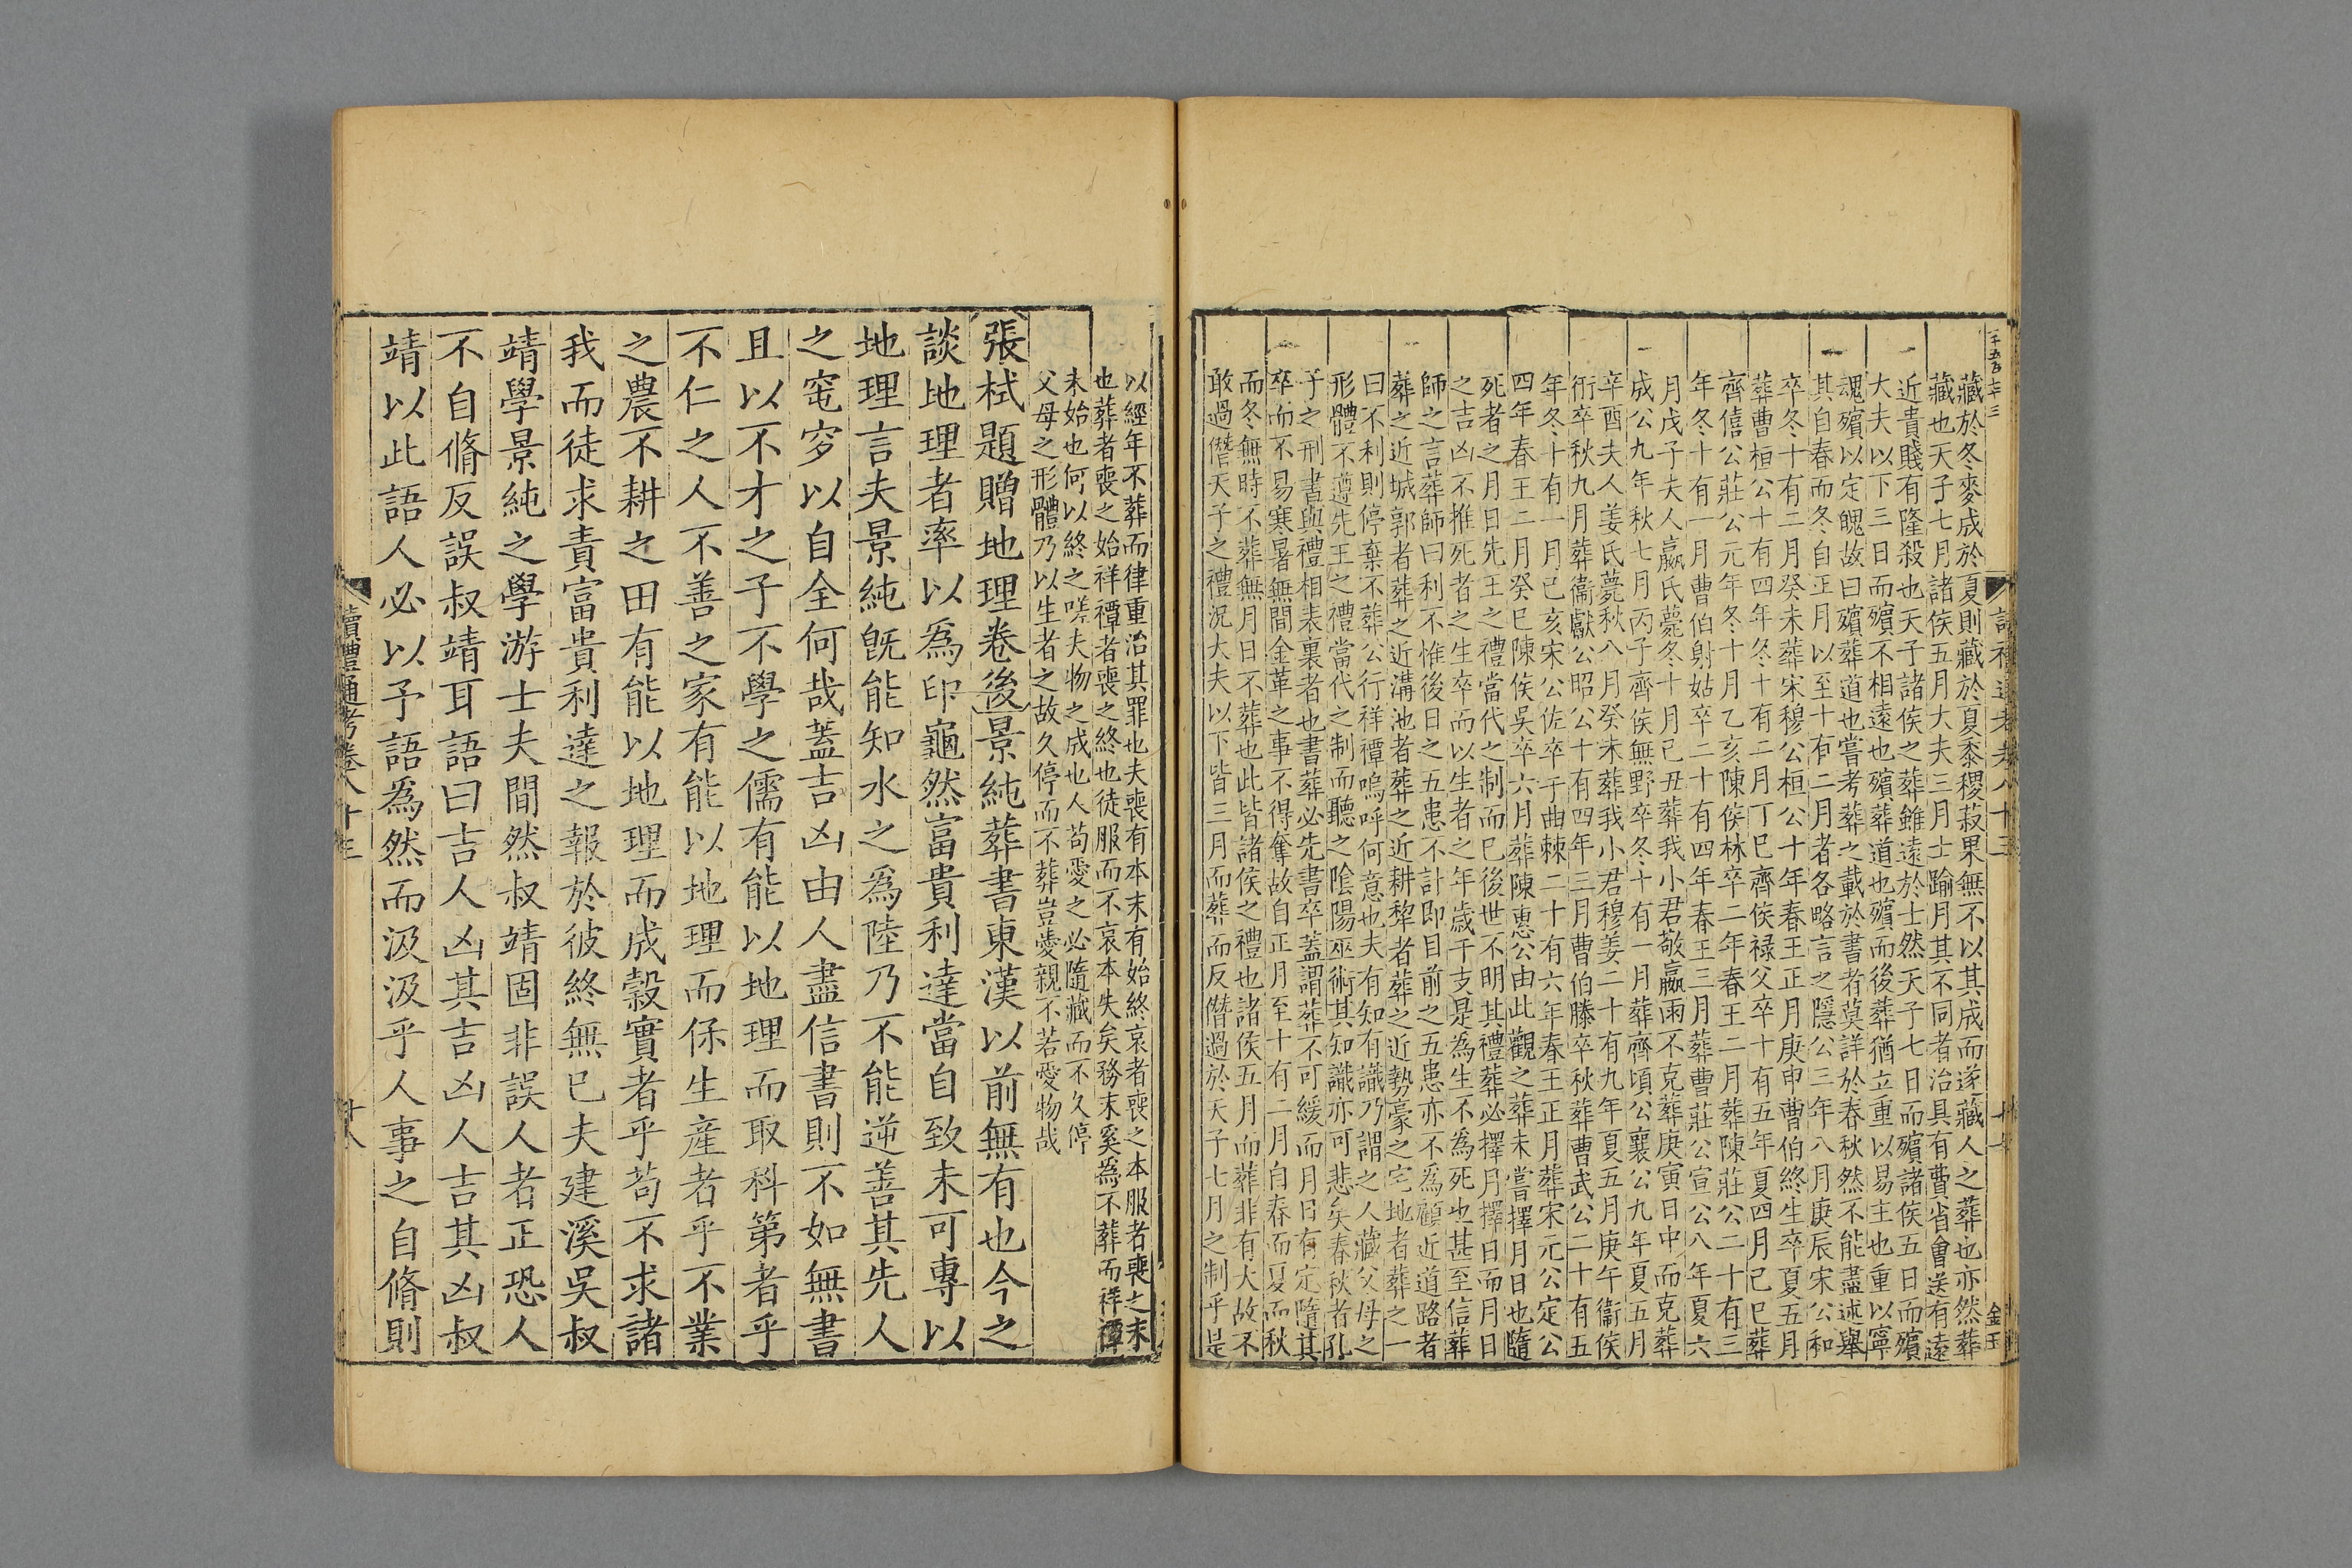 二千五百七十三
讀禮通考卷八十三
金玉
藏於冬麥成於夏則藏於夏黍稷菽果無不以其成而遂藏人之葬也亦然葬
藏也天子七月諸侯五月大夫三月士踰月其不同者治具有費省會送有遠
近貴賤有隆殺也天子諸侯之葬雖遠於士然天子七日而殯諸侯五日而殯
大夫以下三日而殯不相遠也殯葬道也殯而後葬猶立重以易主也重以寧
魂殯以定魄故曰殯葬道也嘗考葬之載於書者莫詳於春秋然不能盡述舉
其自春而冬自正月以至十有二月者各略言之隱公三年八月庚辰宋公和
卒冬十有二月癸未葬宋穆公桓公十年春王正月庚申曹伯終生卒夏五月
葬曹桓公十有四年冬十有二月丁巳齊侯祿父卒十有五年夏四月己巳葬
齊僖公莊公元年冬十月乙亥陳侯林卒二年春王二月葬陳莊公二十有三
年冬十有一月曹伯射姑卒二十有四年春王三月葬曹莊公宣公八年夏六
月戊子夫人嬴氏薨冬十月己丑葬我小君敬嬴雨不克葬庚寅日中而克葬
成公九年秋七月丙子齊侯無野卒冬十有一月葬齊頃公襄公九年夏五月
辛酉夫人姜氏薨秋八月癸未葬我小君穆姜二十有九年夏五月庚午衞侯
衎卒秋九月葬衞獻公昭公十有四年三月曹伯滕卒秋葬曹武公二十有五
年冬十有一月己亥宋公佐卒于曲棘二十有六年春王正月葬宋元公定公
四年春王二月癸巳陳侯吳卒六月葬陳惠公由此觀之葬未嘗擇月日也隨
死者之月日先王之禮當代之制而已後世不明其禮葬必擇月擇日而月日
之吉凶不推死者之生卒而以生者之年歲干支是為生不為死也甚至信葬
師之言葬師曰利不惟後日之五患不計即目前之五患亦不爲顧近道路者
葬之近城郭者葬之近溝池者葬之近耕犂者葬之近勢豪之宅地者葬之一
曰不利則停棄不葬公行祥禫嗚呼何意也夫有知有識乃謂之人藏父母之
形體不遵先王之禮當代之制而聽之陰陽巫術其知識亦可悲矣春秋者孔
子之刑書與禮相表裏者也書葬必先書卒蓋謂葬不可緩而月日有定隨其
卒而不易寒暑無間金革之事不得奪故自正月至十有二月自春而夏而秋
而冬無時不葬無月日不葬也此皆諸侯之禮也諸侯五月而葬非有大故不
敢過僭天子之禮況大夫以下皆三月而葬而反僭過於天子七月之制乎是
以經年不葬而律重治其罪也夫喪有本末有始終哀者喪之本服者喪之末
也葬者喪之始祥禫者喪之終也徒服而不哀本失矣務末奚為不葬而祥禫
未始也何以終之嗟夫物之成也人苟愛之必隨藏而不久停
父母之形體乃以生者之故久停而不葬豈愛親不若愛物哉
張栻題贈地理卷後景純葬書東漢以前無有也今之
談地理者率以爲印龜然富貴利達當自致未可專以
地理言夫景純旣能知水之爲陸乃不能逆善其先人
之窀穸以自全何哉蓋吉凶由人盡信書則不如無書
且以不才之子不學之儒有能以地理而取科第者乎
不仁之人不善之家有能以地理而保生産者乎不業
之農不耕之田有能以地理而成穀實者乎苟不求諸
我而徒求責富貴利達之報於彼終無已夫建溪吳叔
靖學景純之學游士夫間然叔靖固非誤人者正恐人
不自脩反誤叔靖耳語曰吉人凶其吉凶人吉其凶叔
靖以此語人必以予語爲然而汲汲乎人事之自脩則
讀禮通考卷八十三
十八